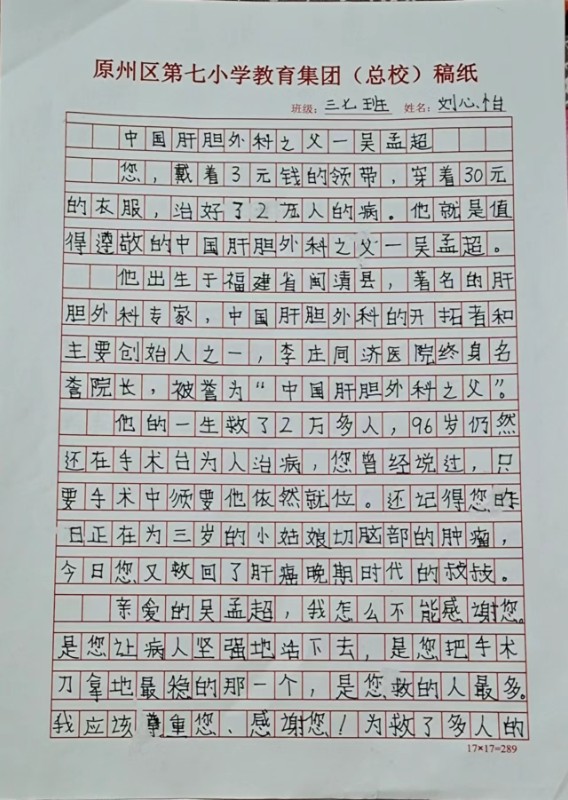 原州区第七小学教育集团（总校）稿纸
班级：三七班 姓名：刘心怡
中国肝胆外科之父一吴孟超
您，戴着3元钱的领带，穿着30元
的衣服，治好了2万人的病。他就是值
得遵敬的中国肝胆外科之父一吴孟超。
他出生于福建省闽清县，著名的肝
胆外科专家，中国肝胆外科的开拓者和
主要创始人之一，李庄同济医院终身名
誉院长，被誉为“中国肝胆外科之父”。
他的一生救了2万多人，96岁仍然
还在手术台为人治病，您曾经说过，只
要手术中须要他依然就位。还记得您昨
日正在为三岁的小姑娘切脑部的肿瘤，
今日您又救回了肝癌晚期时代的叔叔。
亲爱的吴孟超，我怎么不能感谢您。
是您让病人坚强地活下去，是您把手术
刀拿地最稳的那一个，是您救的人最多。
我应该尊重您、感谢您！为救了多人的
17×17=289